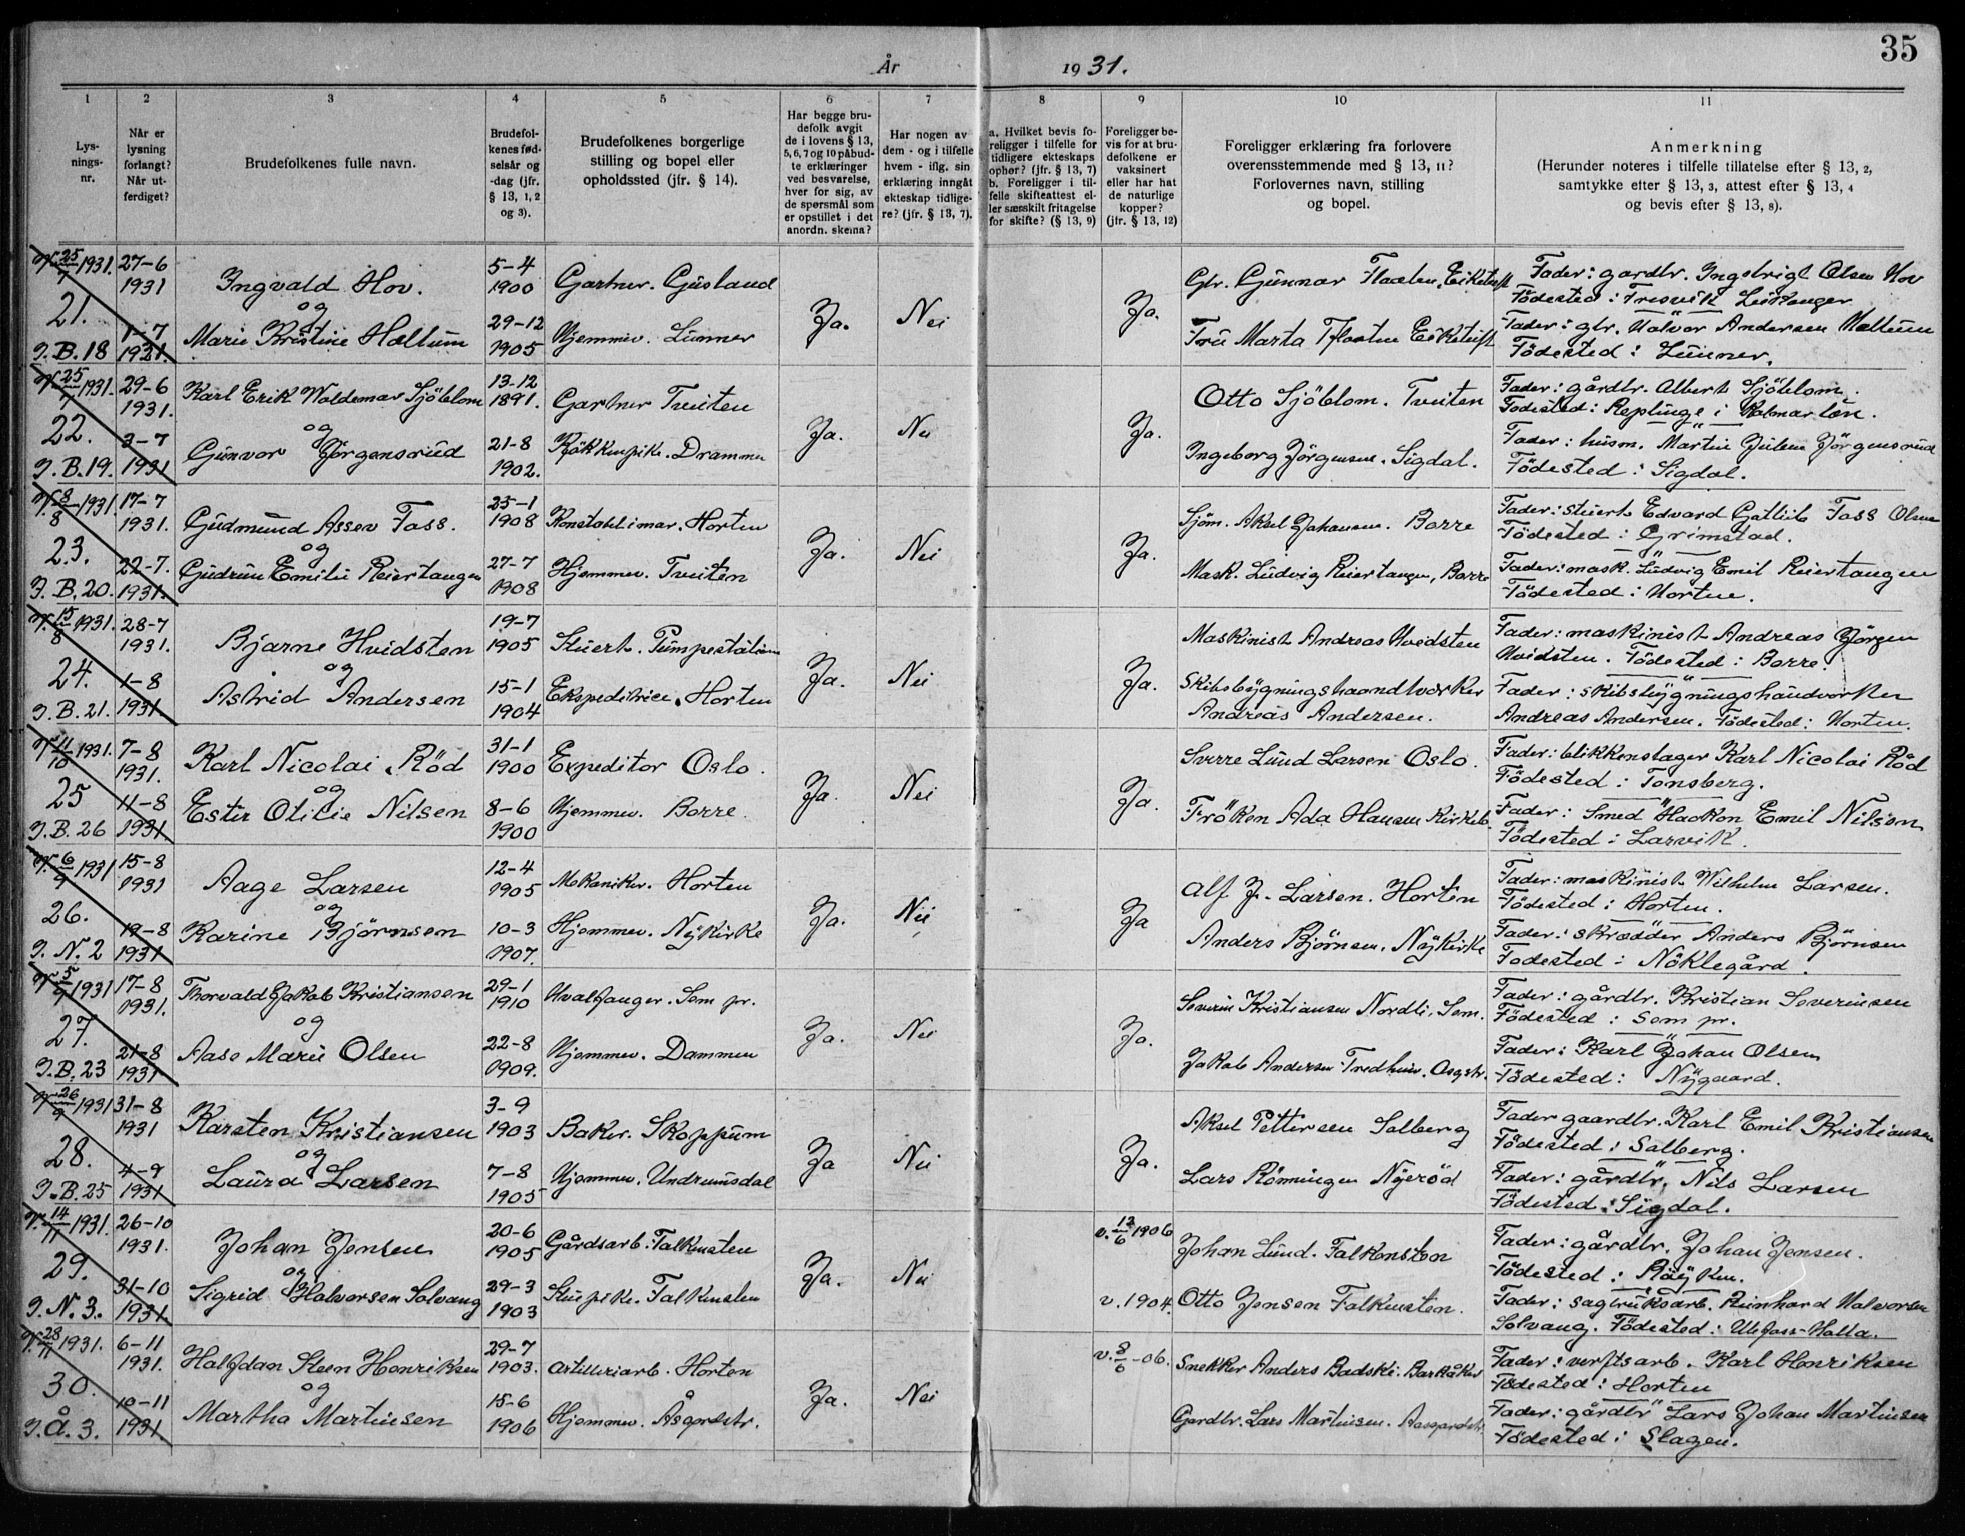 35
År 1931.
1 2 3 4 5 6 7 8 9 10 11
Lys-
nings-
nr.
Når er
lysning
forlangt?
Når ut-
ferdiget?
Brudefolkenes fulle navn.
Brudefol-
kenes fød-
selsår og
-dag (jfr.
§ 13, 1, 2
og 3).
Brudefolkenes borgerlige
stilling og bopel eller
opholdssted (jfr. § 14).
Har begge bru-
defolk avgit
de i lovens § 13,
5, 6, 7 og 10 påbud-
te erklæringer
ved besvarelse,
hver for sig, av
de spørsmål som
er opstillet i det
anordn. skema?
Har nogen av
dem - og i tilfelle
hvem - iflg. sin
erklæring inngåt
ekteskap tidlige-
re? (jfr. § 13, 7).
a. Hvilket bevis fo-
religger i tilfelle for
tidligere ekteskaps
ophør? (jfr. § 13, 7)
b. Foreligger i til-
felle skifteattest el-
ler særskilt fritagelse
for skifte? (§ 13, 9)
Foreligger be-
vis for at bru-
defolkene er
vaksinert
eller har hat
de naturlige
kopper?
(jfr. § 13, 12)
Foreligger erklæring fra forlovere
overensstemmende med § 13, 11?
Forlovernes navn, stilling
og bopel.
Anmerkning
(Herunder noteres i tilfelle tillatelse efter § 13, 2,
samtykke efter § 13, 3, attest efter § 13, 4
og bevis efter § 13, 8).
V. 25/7 1931. 27-6 1931 Ingvald Hov. 5-4 1900 Gartner. Gusland Gbr. Gunnar Flaaten, Eiketuft Fader: gardbr. Ingebrigt Olsen Hov
Fødested: Fresvik Leikanger
21. og Ja. Nei Ja.
J.B. 18 1-7 1931. Marie Kristine Haltum 29-12 1905 Hjemmev. Lunner Fru Marta Flaaten Eiketuft Fader: gbr. Halvor Andersen Haltum
Fødested: Lunner.
V. 25/7 1931. 29-6 1931. Karl Erik Woldemar Sjöblom 13-12 1891. Gartner Tveiten Otto Sjöblom. Tveiten Fader: gårdbr. Albert Sjöblom
Fødested: Replinge i Kalmar län.
22. og Ja. Nei Ja.
J.B. 19. 3-7 1931 Gunvor Jörgensrud 21-8 1902. Kjökkenpike. Drammen Ingeborg Jörgensen. Sigdal. Fader: husm. Martin Julsen Jörgensrud
Födested: Sigdal.
V. 8/8 1931. 17-7 1931. Gudmund Assev Foss. 25-1 1908 Konstabel i mar. Horten Sjöm. Aksel Johansen. Borre Fader: stuert Edvard Gottlieb Foss Olsen
Födested: Grimstad.
23. og Ja. Nei Ja.
J.B. 20. 22-7. 1931. Gudrun Emilie Reiertangen 27-7 1908 Hjemmev. Tveiten Mask. Ludvig Reiertangen, Borre Fader: mask. Ludvig Emil Reiertangen
Födested: Horten.
V. 15/8 1931. 28-7 1931. Bjarne Hvidsten 19-7 1905 Stuert. Pumpestation Maskinist Andreas Hvidsten Fader: maskinist Andreas Jörgen
Hvidsten. Födested: Borre.
24. og Ja. Nei Ja.
J.B. 21. 1-8 1931. Astrid Andersen 15-1 1904 Ekspeditrice. Horten Skibsbygningshaandverker
Andreas Andersen. Fader: skibsbygningshåndverker
Andreas Andersen. Födested: Horten.
V. 11/10 1931. 7-8 1931. Karl Nicolai Röd 31-1 1900 Expeditor Oslo. Sverre Lund Larsen Oslo. Fader: blikkenslager Karl Nicolai Röd
Födested: Tonsberg.
25 og Ja. Nei Ja.
J.B. 26 11-8 1931. Ester Otilie Nilsen 8-6 1900 Hjemmev. Borre. Fröken Ada Hansen Kirkeb. Fader: Smed Haakon Emil Nilsen
Födested: Larvik.
V. 6/9 1931 15-8 1931 Aage Larsen 12-4 1905 Mekaniker. Horten Alf J. Larsen. Horten Fader: maskinist Wilhelm Larsen.
Födested: Horten.
26. og Ja. Nei Ja
J.N. 2 19-8 1931 Karine Bjørnsen 10-3 1907. Hjemmev. Nykirke Anders Bjørnsen. Nykirke Fader: skrædder Anders Bjørnsen
Fodested: Nöklegård.
V. 5/9 1931 17-8 1931. Thorvald Jakob Kristiansen 29-1 1910 Hvalfanger. Sem pr. Severin Kristiansen Nordli, Sem. Fader: gårdbr. Kristian Severinsen
Födested: Sem pr.
27. og Ja. Nei Ja.
J.B. 23 21-8 1931 Aase Marie Olsen 22-8 1909. Hjemmev. Dammen Jakob Andersen Fredheim. Osgstr. Fader: Karl Johan Olsen
Födested: Nygaard.
V. 26/9 1931 31-8 1931 Karsten Kristiansen 3-9 1903 Baker. Skoppum Aksel Pettersen Solberg Fader gaardbr. Karl Emil Kristiansen
Födested: Solberg.
28. og Ja Nei Ja.
J.B. 25 4-9 1931 Laura Larsen 7-8 1905 Hjemmev. Undrumsdal Lars Rönningen Nyeröd Fader: gårdbr. Nils Larsen
Födested: Sigdal.
V. 14/11 1931. 26-10 1931. Johan Jensen 20-6 1905 Gårdsarb. Falkensten v. 12/6 1906 Johan Lund. Falkensten Fader: gårdbr. Johan Jensen.
Födested: Röyken.
29. og Ja. Nei
J.N. 3. 31-10 1931. Sigrid Halvorsen Solvang 29-3 1903 Stuepike. Falkensten v. 1904. Otto Jensen Falkensten. Fader: sagbruksarb. Reinhard Halvorsen
Solvang. Födested: Ulefoss-Holla.
V. 28/11 1931. 6-11 1931. Halfdan Steen Henriksen 29-7 1903. Artilleriarb. Horten v. 8/6 -06. Snekker Anders Badski. Barkåker Fader: verftsarb. Karl Henriksen
Födested: Horten
30. og Ja. Nei
J.Å. 3. 10-11 1931 Martha Martinsen 15-6 1906 Hjemmev. Åsgårdstr. Gardbr. Lars Martinsen. Aasgaardstr. Fader: gårdbr Lars Johan Martinsen
Födested: Slagen.